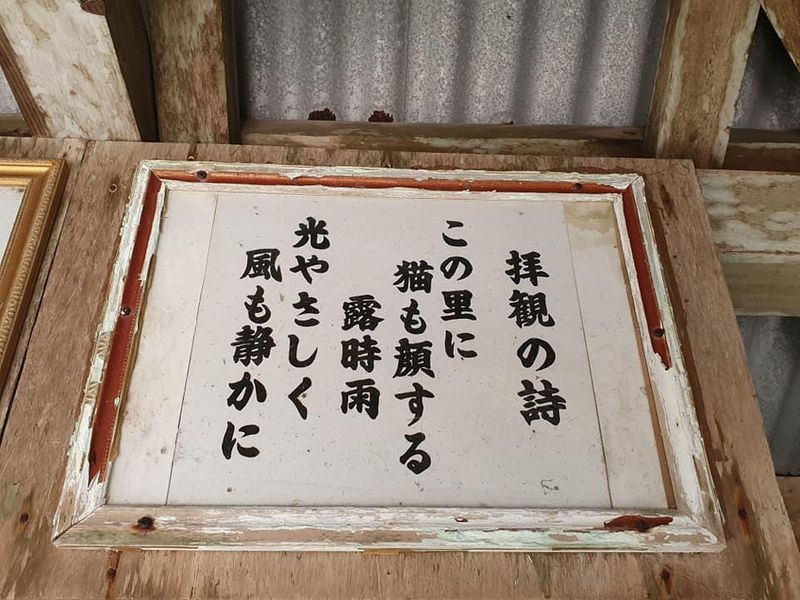 拝観の詩
この里に
猫も顔する
露時雨
光やさしく
風も静かに